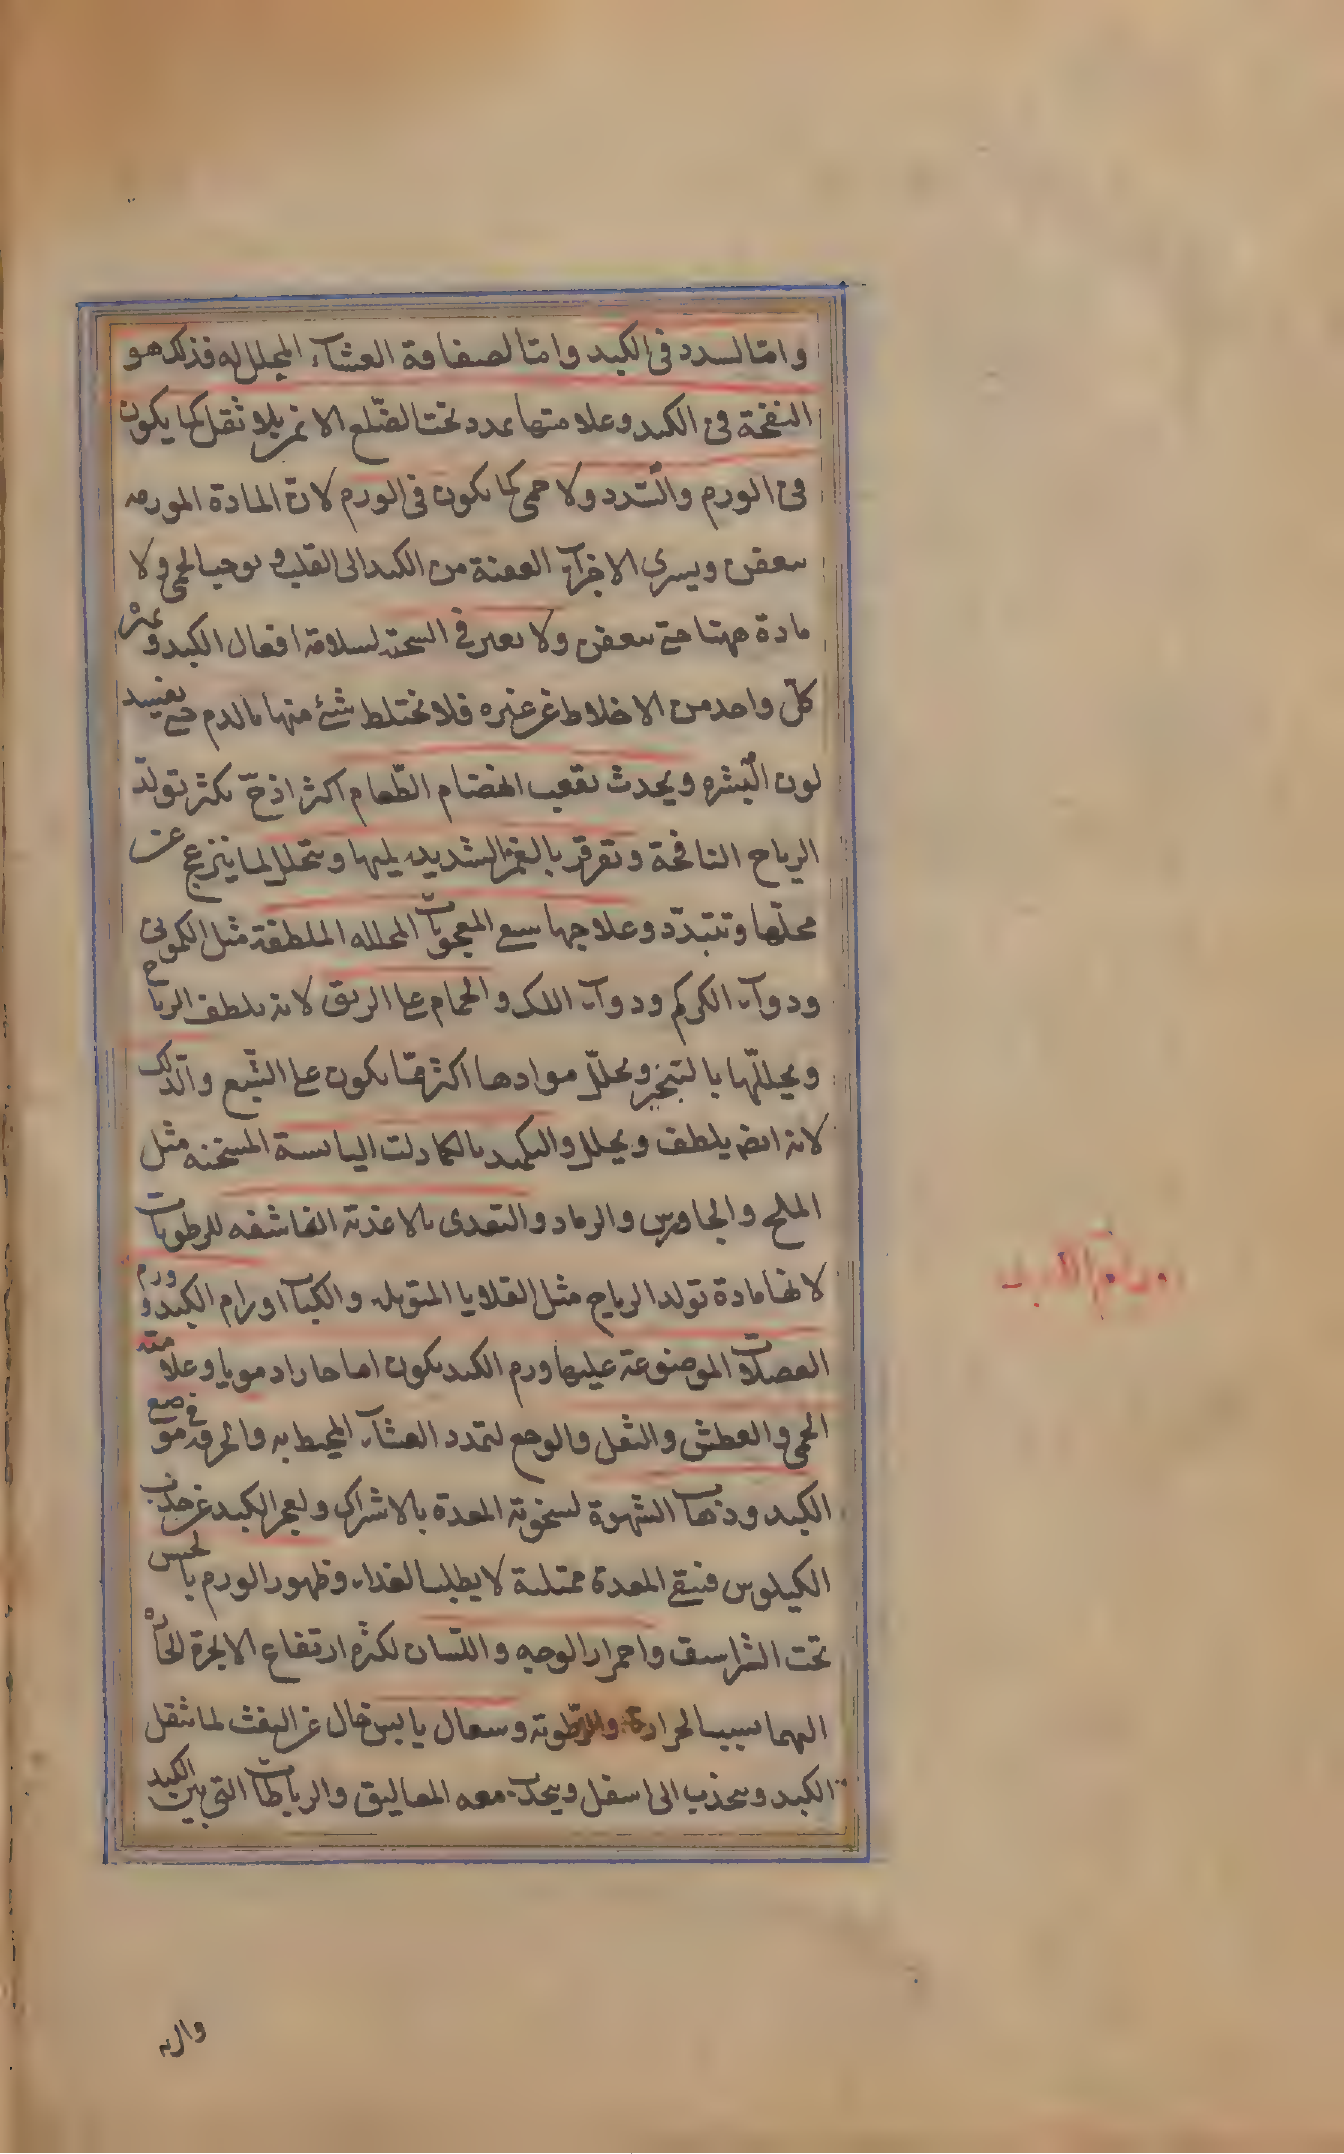 واما لسدد فى الكبد واما لصفاقة الغشاء المجلل له فذلك هو
النفخة فى الكبد وعلامتها تمدد تحت الضلع الايمن بلا ثقل كما يكون
فى الورم والسدد ولا حمى كما يكون فى الورم لان المادة المورمه
يتعفن ويسرى الاجزاء العفنة من الكبد الى القلب و يوجب الحمى ولا
مادة ههنا حتى يتعفن ولا تغير فى السحنه لسلامة افعال الكبد و تميز
كل واحد من الاخلاط عن غيره فلا تختلط شئ منها بالدم حتى يفسد
لون البشره ويحدث بعقب انهضام الطعام اكثر اذ ح يكثر تولد
الرياح النافخة وتقرقر بالغمز الشديد يليها و يتحلل لما ينزعج عن
محلها وتتبدد وعلاجها سقى المعجونات المحلله الملطفة مثل الكمونى
ودواء الكركم ودواء اللك والحمام على الريق لانه يلطف الرياح
ويحللها بالتبخير ويحلل موادها اكثر مما يكون على الشبع والدلك
لانه ايضا يلطف ويحلل والتكميد بالكمادات اليابسة المسخنه مثل
الملح والجاورس والرماد والتغذى بالاغذية الناشفه للرطوبات
لانها مادة تولد الرياح مثل القلايا المتوبله والكباب اورام الكبد و ورم
العضلات الموضوعة عليها ورم الكبد يكون اما حارا دمويا وعلامته
الحمى والعطش والثقل والوجع لتمدد الغشاء المحيط به والحرقه فى موضع
الكبد وذهاب الشهوة لسخونة المعدة بالاشتراك ولعجز الكبد عن جذب
الكيلوس فتبقى المعدة ممتلئة لا يطلب الغذاء وظهور الورم بالحس
تحت الشراسيف واحمرار الوجه واللسان لكثرة ارتفاع الابخرة الحارة
اليهما بسبب الحرارة والرطوبة وسعال يابس خال عن النفث لما تثقل
الكبد وينجذب الى اسفل وينجذب معه المعاليق والرباطات التى بين الكبد